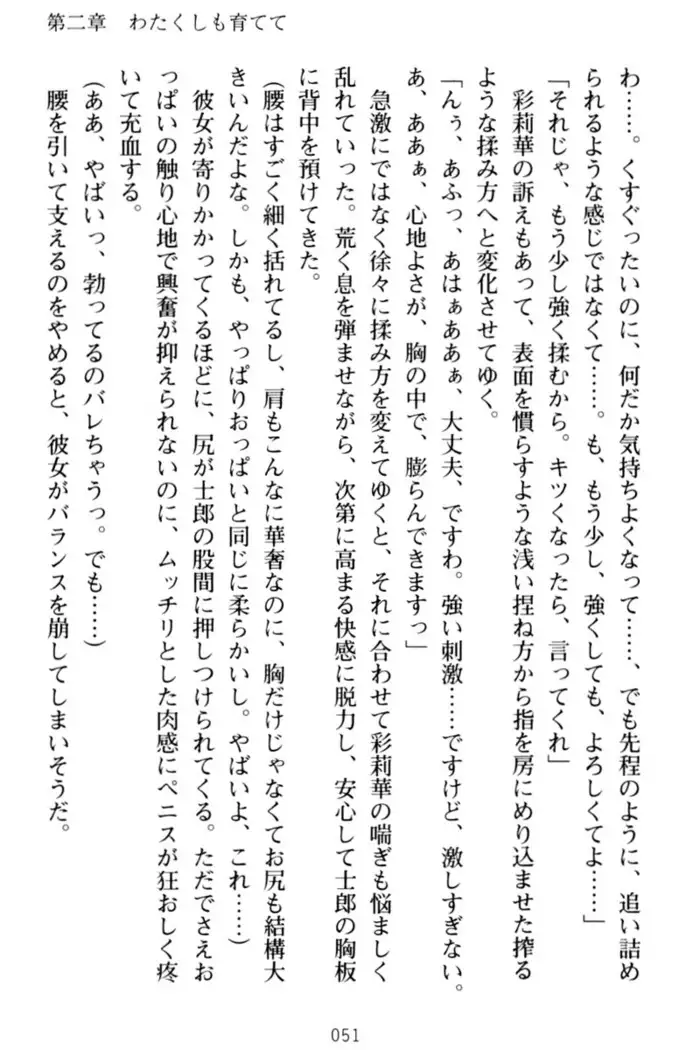 第二章　わたくしも育てて
わ……。くすぐったいのに、何だか気持ちよくなって……、でも先程のように、追い詰め
られるような感じではなくて……。も、もう少し、強くしても、よろしくてよ……」
「それじゃ、もう少し強く揉むから。キツくなったら、言ってくれ」
彩莉華の訴えもあって、表面を慣らすような浅い捏ね方から指を房にめり込ませた搾る
ような揉み方へと変化させてゆく。
「んぅ、あふっ、あはぁああぁ、大丈夫、ですわ。強い刺激……ですけど、激しすぎない。
あ、ああぁ、心地よさが、胸の中で、膨らんできますっ」
急激にではなく徐々に揉み方を変えてゆくと、それに合わせて彩莉華の喘ぎも悩ましく
乱れていった。荒く息を弾ませながら、次第に高まる快感に脱力し、安心して士郎の胸板
に背中を預けてきた。
（腰はすごく細く括れてるし、肩もこんなに華奢なのに、胸だけじゃなくてお尻も結構大
きいんだよな。しかも、やっぱりおっぱいと同じに柔らかいし。やばいよ、これ……）
彼女が寄りかかってくるほどに、尻が士郎の股間に押しつけられてくる。ただでさえお
っぱいの触り心地で興奮が抑えられないのに、ムッチリとした肉感にペニスが狂おしく疼
いて充血する。
（ああ、やばいっ、勃ってるのバレちゃうっ。でも……）
腰を引いて支えるのをやめると、彼女がバランスを崩してしまいそうだ。
051